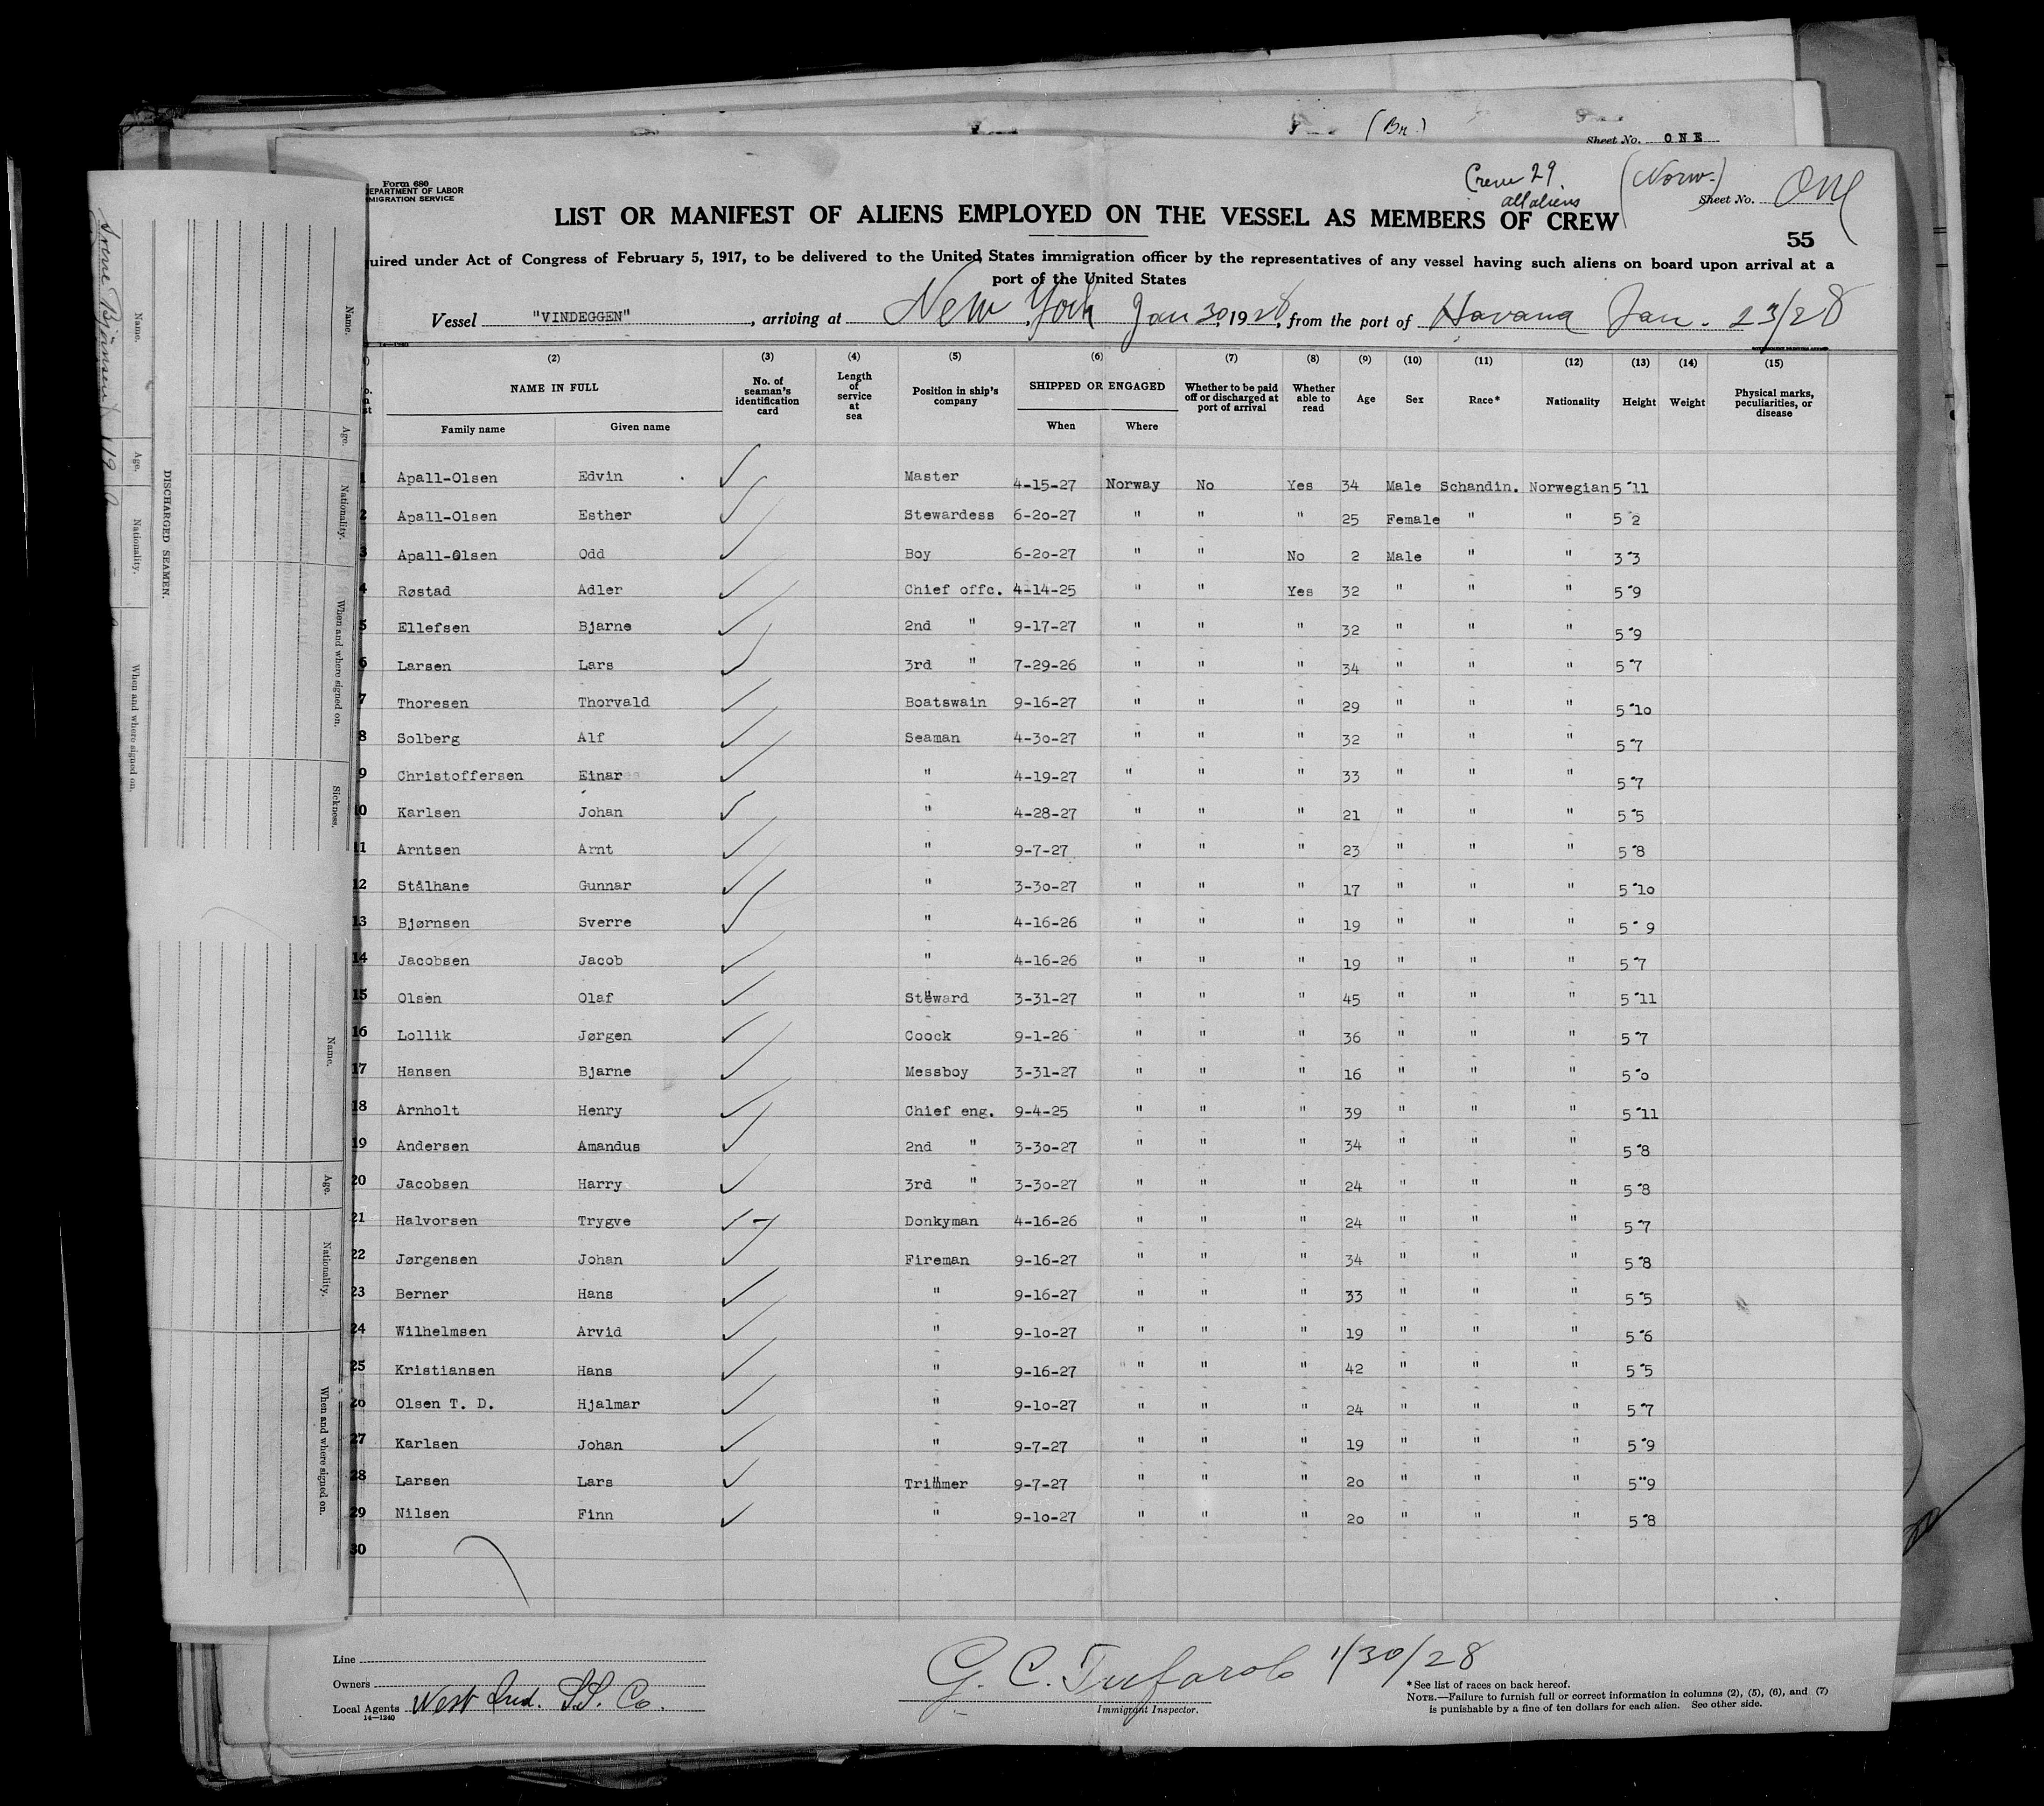 (Bn.)
Sheet No. ONE
Form 680
DEPARTMENT OF LABOR
IMMIGRATION SERVICE
Crew 29
all aliens
(Norw.)
Sheet No. One
LIST OR MANIFEST OF ALIENS EMPLOYED ON THE VESSEL AS MEMBERS OF CREW
55
uired under Act of Congress of February 5, 1917, to be delivered to the United States immigration officer by the representatives of any vessel having such aliens on board upon arrival at a
port of the United States
Vessel "VINDEGGEN", arriving at New York Jan 30, 1928, from the port of Havana Jan. 23/28
14—1240
(2) (3) (4) (5) (6) (7) (8) (9) (10) (11) (12) (13) (14) (15)
NAME IN FULL No. of seaman's identification card Length of service at sea Position in ship's company SHIPPED OR ENGAGED Whether to be paid off or discharged at port of arrival Whether able to read Age Sex Race* Nationality Height Weight Physical marks, peculiarities, or disease
Family name Given name When Where
1 Apall-Olsen Edvin Master 4-15-27 Norway No Yes 34 Male Schandin. Norwegian 5"11
2 Apall-Olsen Esther Stewardess 6-20-27 " " " 25 Female " " 5 2
3 Apall-Olsen Odd Boy 6-20-27 " " No 2 Male " " 3"3
4 Røstad Adler Chief offc. 4-14-25 " " Yes 32 " " " 5"9
5 Ellefsen Bjarne 2nd " 9-17-27 " " " 32 " " " 5"9
6 Larsen Lars 3rd " 7-29-26 " " " 34 " " " 5"7
7 Thoresen Thorvald Boatswain 9-16-27 " " " 29 " " " 5"10
8 Solberg Alf Seaman 4-30-27 " " " 32 " " " 5"7
9 Christoffersen Einar " 4-19-27 " " " 33 " " " 5"7
10 Karlsen Johan " 4-28-27 " " " 21 " " " 5"5
11 Arntsen Arnt " 9-7-27 " " " 23 " " " 5"8
12 Stålhane Gunnar " 3-30-27 " " " 17 " " " 5"10
13 Bjørnsen Sverre " 4-16-26 " " " 19 " " " 5" 9
14 Jacobsen Jacob " 4-16-26 " " " 19 " " " 5"7
15 Olsen Olaf Steward 3-31-27 " " " 45 " " " 5"11
16 Lollik Jørgen Coock 9-1-26 " " " 36 " " " 5"7
17 Hansen Bjarne Messboy 3-31-27 " " " 16 " " " 5"0
18 Arnholt Henry Chief eng. 9-4-25 " " " 39 " " " 5"11
19 Andersen Amandus 2nd " 3-30-27 " " " 34 " " " 5"8
20 Jacobsen Harry 3rd " 3-30-27 " " " 24 " " " 5"8
21 Halvorsen Trygve Donkyman 4-16-26 " " " 24 " " " 5"7
22 Jørgensen Johan Fireman 9-16-27 " " " 34 " " " 5"8
23 Berner Hans " 9-16-27 " " " 33 " " " 5"5
24 Wilhelmsen Arvid " 9-10-27 " " " 19 " " " 5"6
25 Kristiansen Hans " 9-16-27 " " " 42 " " " 5"5
26 Olsen T. D. Hjalmar " 9-10-27 " " " 24 " " " 5"7
27 Karlsen Johan " 9-7-27 " " " 19 " " " 5"9
28 Larsen Lars Trimmer 9-7-27 " " " 20 " " " 5"9
29 Nilsen Finn " 9-10-27 " " " 20 " " " 5"8
30
Line
Owners
Local Agents West Ind. S.S. Co.
14—1240
G. C. Tufarolo 1/30/28
Immigrant Inspector.
*See list of races on back hereof.
NOTE.—Failure to furnish full or correct information in columns (2), (5), (6), and (7)
is punishable by a fine of ten dollars for each alien. See other side.
DISCHARGED SEAMEN.
Name. Age. Nationality. When and where signed on.
Name. Age. Nationality. When and where signed on. Sickness.
Name. Age. Nationality. When and where signed on.